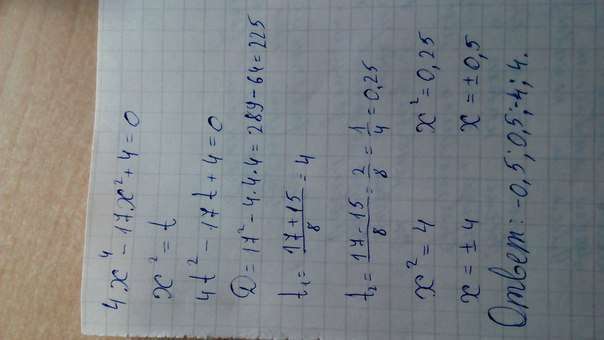 4x⁴ - 17x² + 4 = 0
x² = t
4t² - 17t + 4 = 0
D = 17² - 4·4·4 = 289 - 64 = 225
t₁ = (17+15)/8 = 4
t₂ = (17-15)/8 = 2/8 = 1/4 = 0,25
x² = 4 x² = 0,25
x = ±4 x = ±0,5
Ответ: -0,5; 0,5; -4; 4.